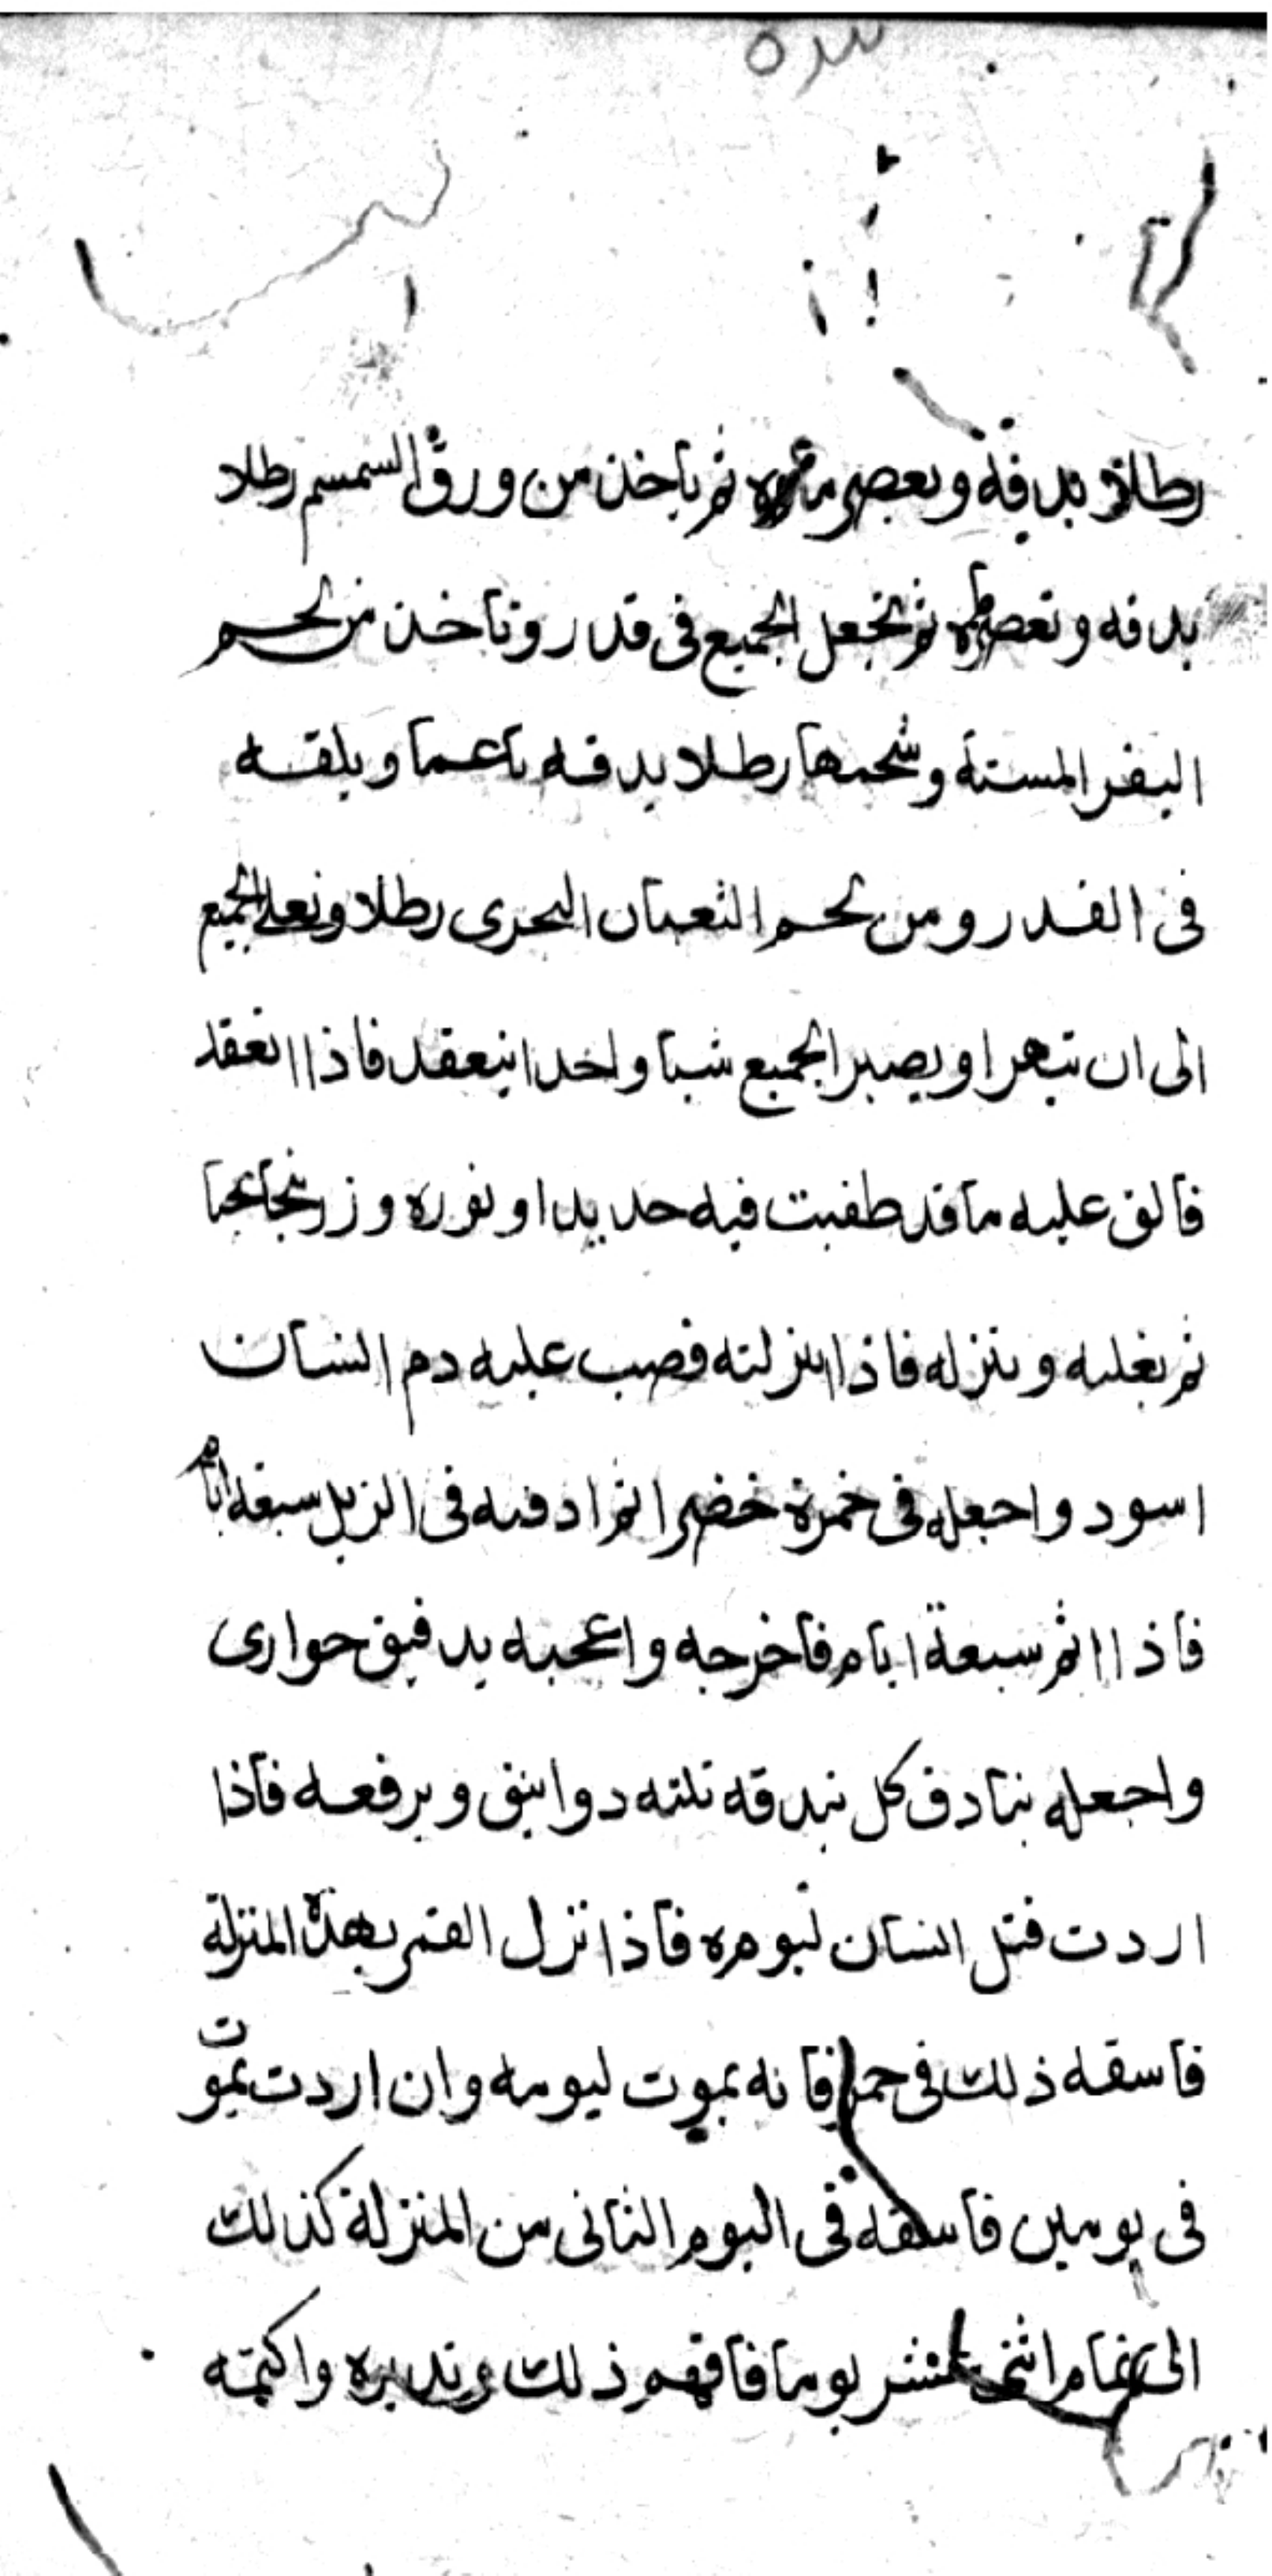 رطلا وتدقه وتعصر ماءه ثم تاخذ من ورق السمسم رطلا
تدقه وتعصره ثم تجعل الجميع فى قدر وتاخذ من لحم
البقر المسنة وشحمها رطلا يدقه ناعما ويلقه
فى القدر ومن لحم الثعبان البحرى رطلا وتغلى الجميع
الى ان يتهرا ويصير الجميع شيا واحدا ينعقد فاذا انعقد
فالق عليه ما قد طفيت فيه حديدا ونوره وزرنيخا
ثم تغليه وتنزله فاذا انزلته فصب عليه دم انسان
اسود واجعله فى خمرة خضرا ثم ادفنه فى الزبل سبعه ايام
فاذا اتم سبعة ايام فاخرجه واعجنه بدقيق حوارى
واجعله بنادق كل بندقه ثلثه دوانيق ويرفعه فاذا
اردت قتل انسان ليومه فاذا نزل القمر بهذه المنزلة
فاسقه ذلك فى خمر فانه يموت ليومه وان اردت يموت
فى يومين فاسقه فى اليوم الثانى من المنزلة كذلك
الى تمام اثنى عشر يوما فافهم ذلك وتدبره واكتمه